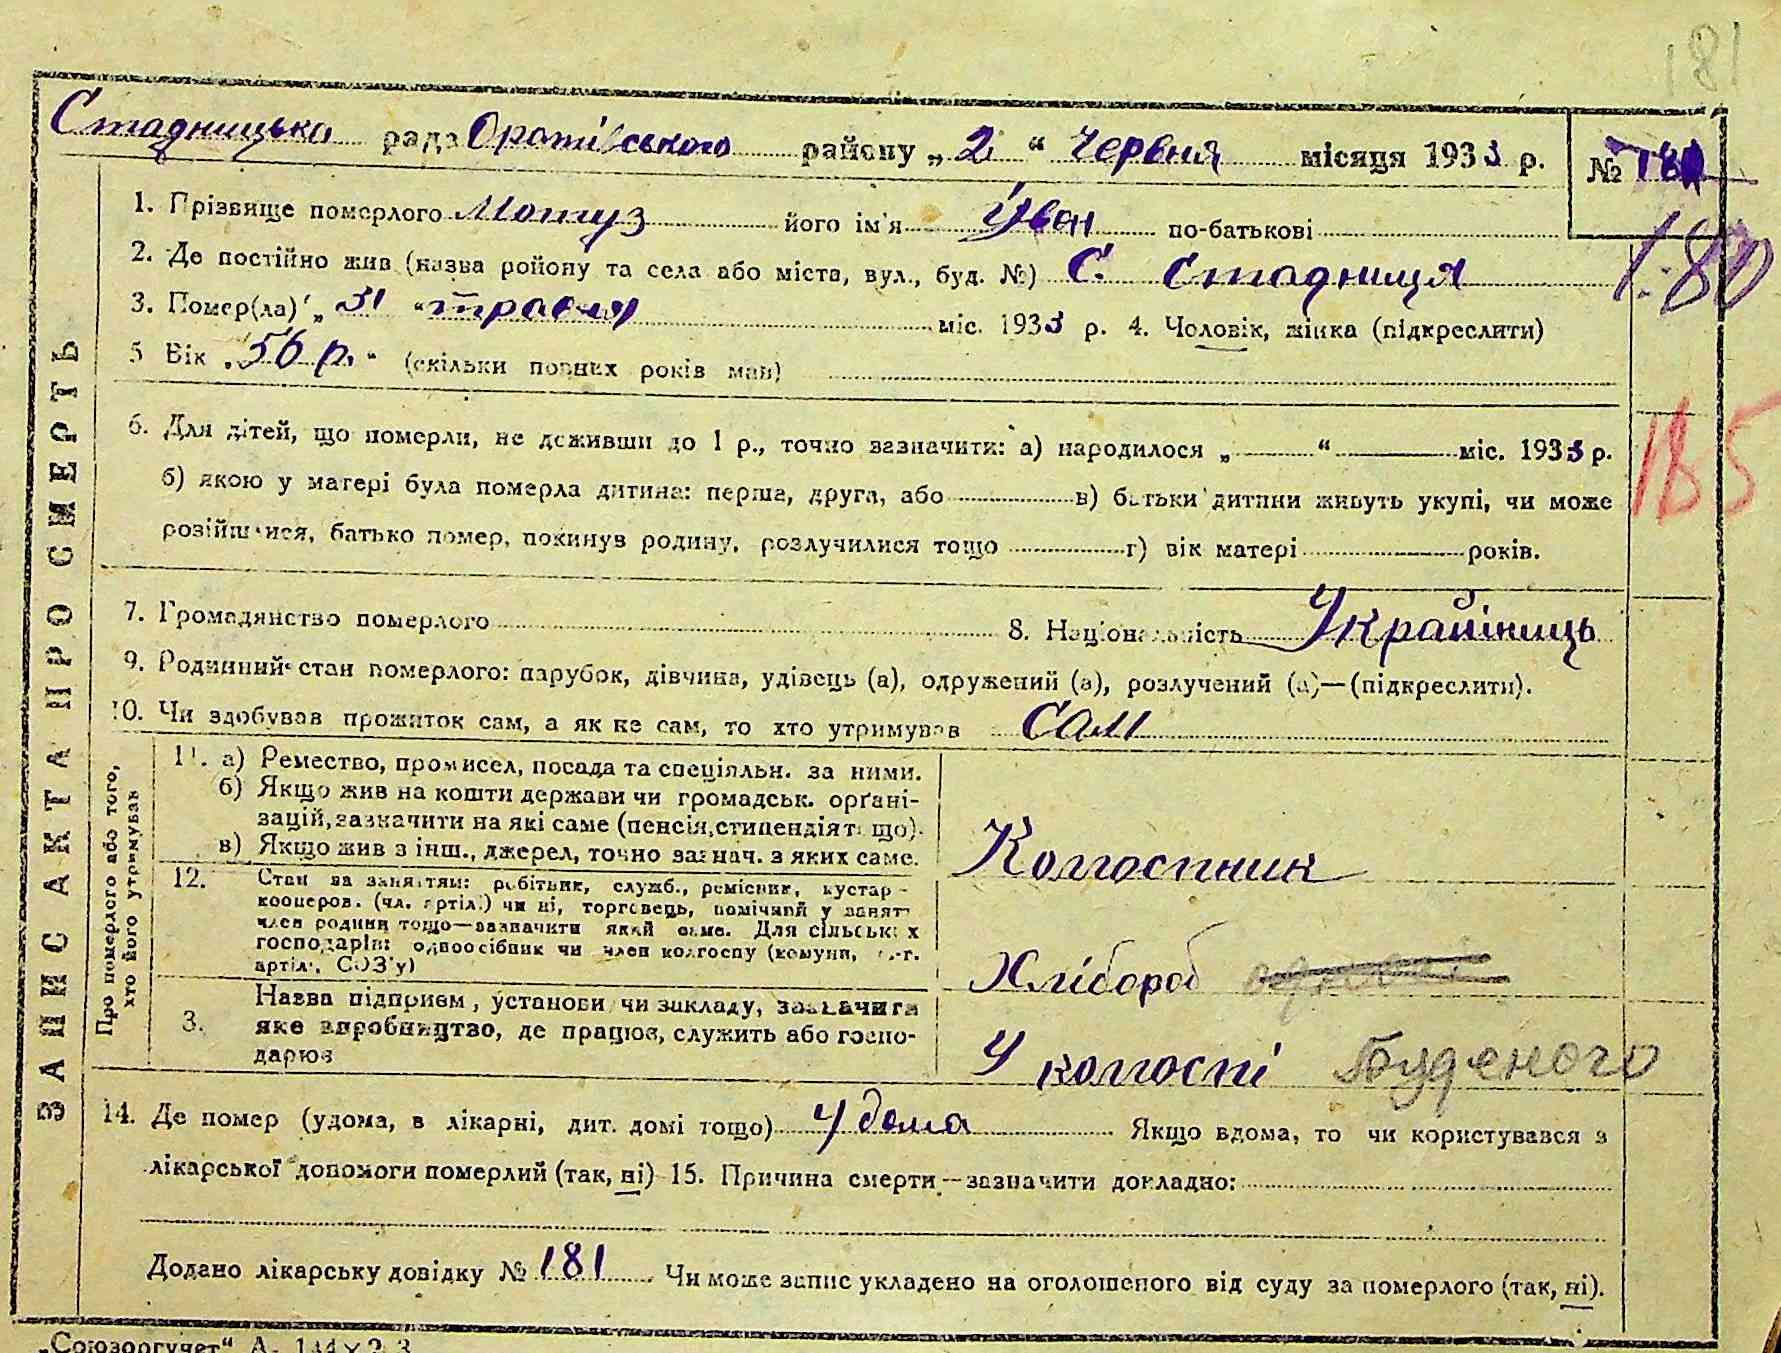 181
Стадницька рада Оратівського району „2“ Червня місяця 1933 р. № 181
180
1. Прізвище померлого Мотуз його ім'я Йван по-батькові
2. Де постійно жив (назва району та села або міста, вул., буд. №) С. Стадниця
3. Помер(ла) „31“ травня міс. 1933 р. 4. Чоловік, жінка (підкреслити)
5 Вік „56 р.“ (скільки повних років мав)
6. Для дітей, що померли, не доживши до 1 р., точно зазначити: а) народилося „ “ міс. 1933 р.
185
б) якою у матері була померла дитина: перша, друга, або в) батьки дитини живуть укупі, чи може
розійшлися, батько помер, покинув родину, розлучилися тощо г) вік матері років.
7. Громадянство померлого 8. Національність Украйіниць
9. Родинний стан померлого: парубок, дівчина, удівець (а), одружений (а), розлучений (а)—(підкреслити).
10. Чи здобував прожиток сам, а як не сам, то хто утримував Сам
ЗАПИС АКТА ПРО СМЕРТЬ
Про померлого або того,
хто його утримував
11. а) Ремество, промисел, посада та спеціяльн. за ними.
б) Якщо жив на кошти держави чи громадськ. орґані-
зацій, зазначити на які саме (пенсія, стипендія тощо).
в) Якщо жив з інш., джерел, точно зазнач. з яких саме.
Колгоспник
12. Стан за заняттям: робітник, служб., ремісник, кустар-
кооперов. (чл. артілі) чи ні, торговець, помічний у занят.
член родини тощо—зазначити який саме. Для сільських
господарів: одноосібник чи член колгоспу (комуни, с.-г.
артілі, СОЗ'у)
Хлібороб
3. Назва підприєм, установи чи закладу, зазначити
яке виробництво, де працює, служить або госпо-
дарює
У колгоспі Буденого
14. Де помер (удома, в лікарні, дит. домі тощо) У дома Якщо вдома, то чи користувався з
лікарської допомоги померлий (так, ні) 15. Причина смерти—зазначити докладно:
Додано лікарську довідку № 181. Чи може запис укладено на оголошеного від суду за померлого (так, ні).
„Союзоргучет“ А. 144×2 3